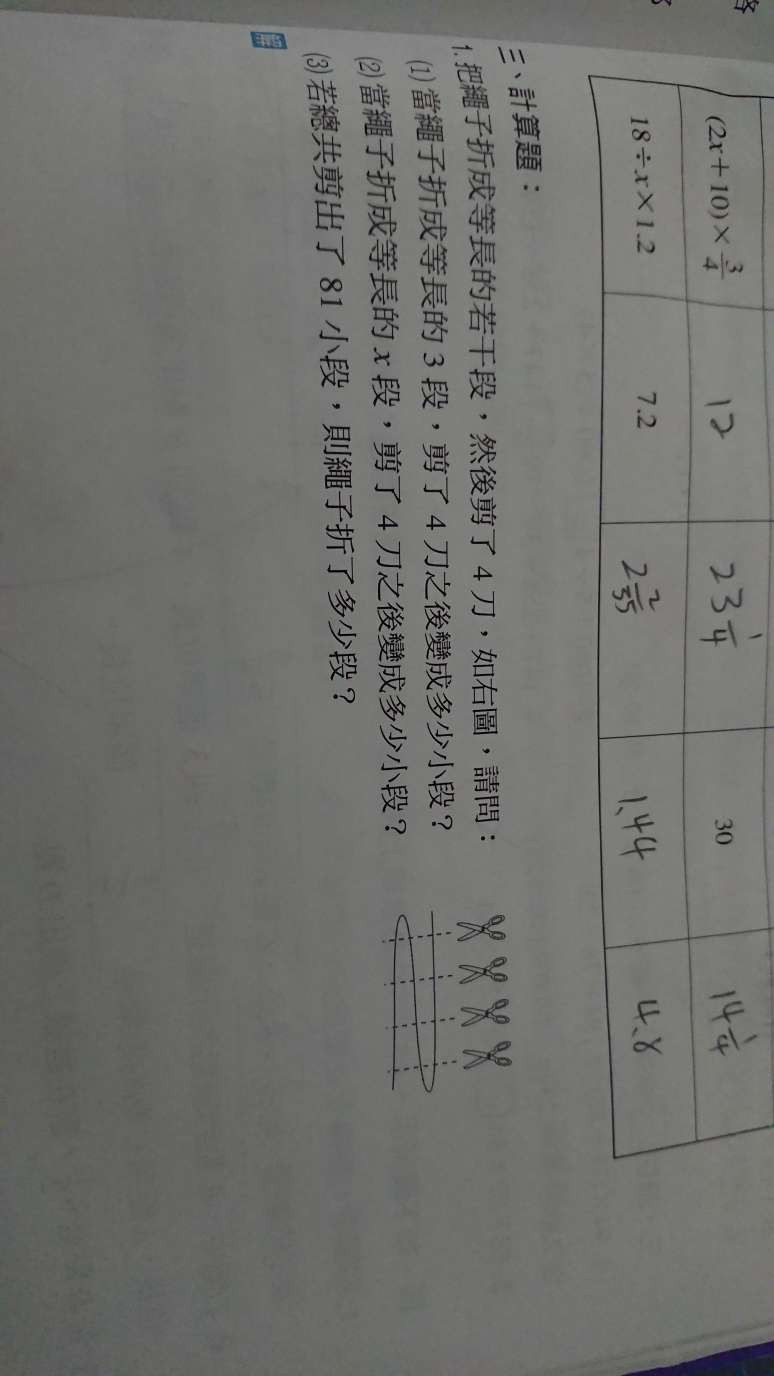 (2x+10)×3/4 12 23 1/4 30 14 1/4
18÷x×1.2 7.2 2 2/35 1.44 4.8
三、計算題：
1. 把繩子折成等長的若干段，然後剪了 4 刀，如右圖，請問：
(1) 當繩子折成等長的 3 段，剪了 4 刀之後變成多少小段？
(2) 當繩子折成等長的 x 段，剪了 4 刀之後變成多少小段？
(3) 若總共剪出了 81 小段，則繩子折了多少段？
解